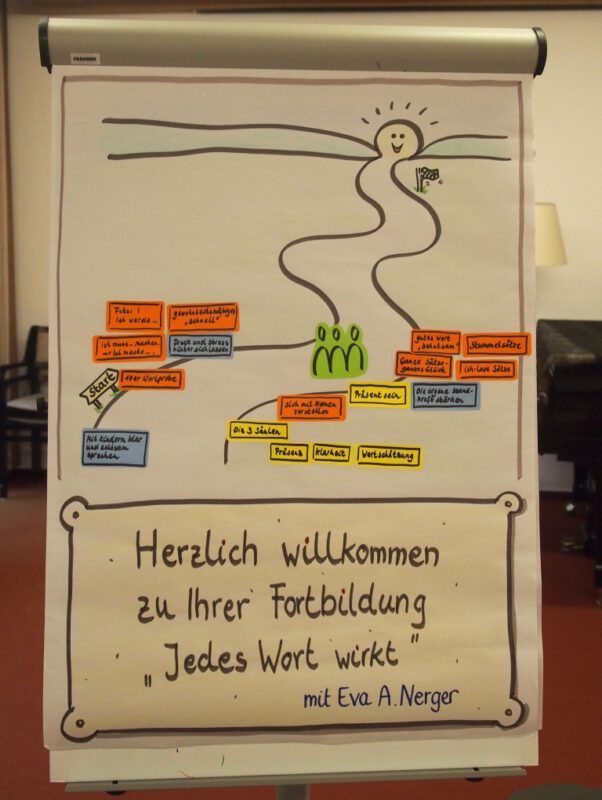 FRANKEN
Futur I
Ich werde..
gewohnheitsmäßiges
„Schnell"
Ich muss.. machen
mit Ich mache...
Druck und Stress
hinter sich lassen
Start
1364 Wortprobe
Mit Kindern klar
und achtsam
sprechen
gutes Wort
„behutsam"
Stummelsätze
Ganze Sätze-
ganzes Glück
ich-lose Sätze
Präsent sein
Die eigene Stand-
kraft stärken
sich mit Namen
vorstellen
Die 3 Säulen
Präsenz
Klarheit
Wertschätzung
Herzlich willkommen
zu Ihrer Fortbildung
„Jedes Wort wirkt"
mit Eva A. Nerger